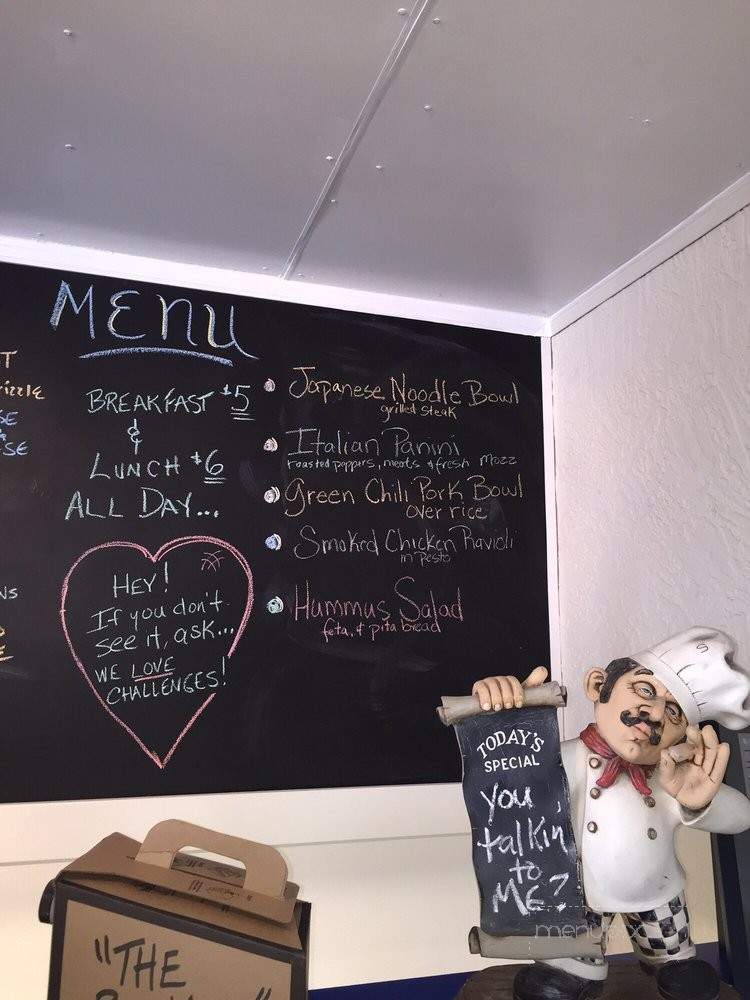 MENU
BREAKFAST $5
&
LUNCH $6
ALL DAY...
HEY!
If you don't
see it, ask...
WE LOVE
CHALLENGES!
Japanese Noodle Bowl
grilled steak
Italian Panini
roasted peppers, meats & fresh mozz
Green Chili Pork Bowl
over rice
Smoked Chicken Ravioli
in Pesto
Hummus Salad
feta, & pita bread
TODAY'S
SPECIAL
You
talkin'
to
ME?
"THE